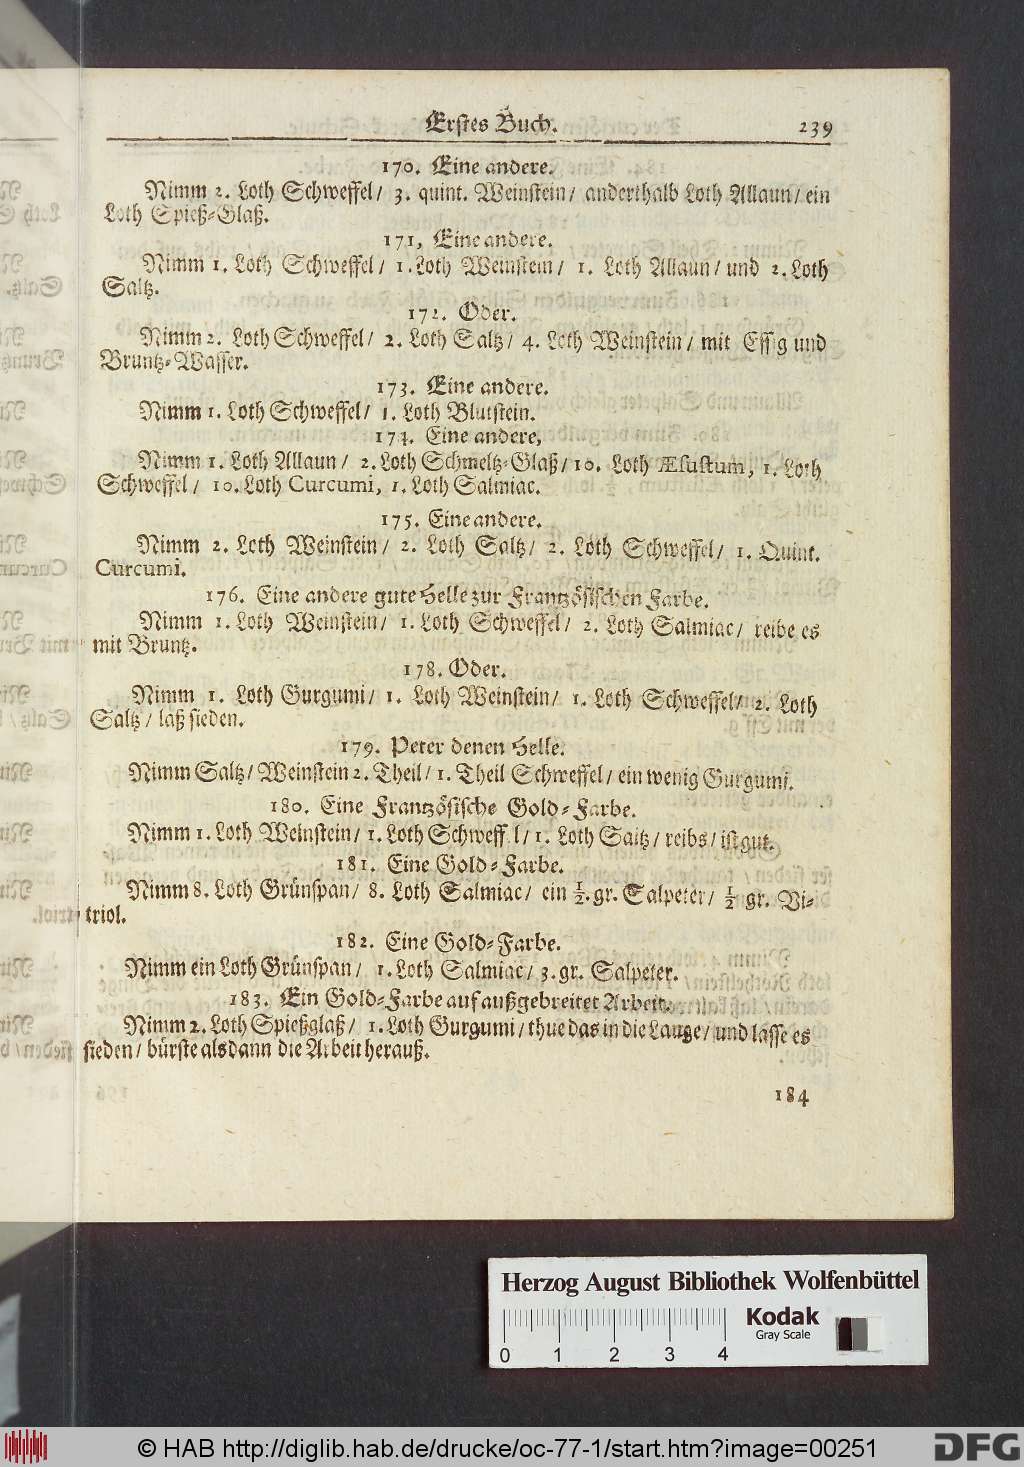 Erstes Buch. 239
170. Eine andere.
Nimm 2. Loth Schweffel/ 3. quint. Weinstein/ anderthalb Loth Allaun/ ein
Loth Spieß-Glaß.
171, Eine andere.
Nimm 1. Loth Schweffel/ 1. Loth Weinstein/ 1. Loth Allaun/ und 2. Loth
Saltz.
172. Oder.
Nimm 2. Loth Schweffel/ 2. Loth Saltz/ 4. Loth Weinstein/ mit Essig und
Bruntz-Wasser.
173. Eine andere.
Nimm 1. Loth Schweffel/ 1. Loth Blutstein.
174. Eine andere,
Nimm 1. Loth Allaun/ 2. Loth Schmeltz-Glaß/ 10. Loth Æsustum, 1. Loth
Schweffel/ 10. Loth Curcumi, 1. Loth Salmiac.
175. Eine andere.
Nimm 2. Loth Weinstein/ 2. Loth Saltz/ 2. Loth Schweffel/ 1. Quint.
Curcumi.
176. Eine andere gute Helle zur Frantzösischen Farbe.
Nimm 1. Loth Weinstein/ 1. Loth Schweffel/ 2. Loth Salmiac/ reibe es
mit Bruntz.
178. Oder.
Nimm 1. Loth Gurgumi/ 1. Loth Weinstein/ 1. Loth Schweffel/ 2. Loth
Saltz/ laß sieden.
179. Peter denen Helle.
Nimm Saltz/ Weinstein 2. Theil/ 1. Theil Schweffel/ ein wenig Gurgumi.
180. Eine Frantzösische Gold-Farbe.
Nimm 1. Loth Weinstein/ 1. Loth Schweff l/ 1. Loth Saltz/ reibs/ ist gut.
181. Eine Gold-Farbe.
Nimm 8. Loth Grünspan/ 8. Loth Salmiac/ ein ½. gr. Salpeter/ ½ gr. Vi-
triol.
182. Eine Gold-Farbe.
Nimm ein Loth Grünspan/ 1. Loth Salmiac/ 3. gr. Salpeter.
183. Ein Gold-Farbe auf außgebreitet Arbeit.
Nimm 2. Loth Spießglaß/ 1. Loth Gurgumi/ thue das in die Lauge/ und lasse es
sieden/ bürste alsdann die Arbeit herauß.
184
Herzog August Bibliothek Wolfenbüttel
Kodak
Gray Scale
0 1 2 3 4
© HAB http://diglib.hab.de/drucke/oc-77-1/start.htm?image=00251
DFG